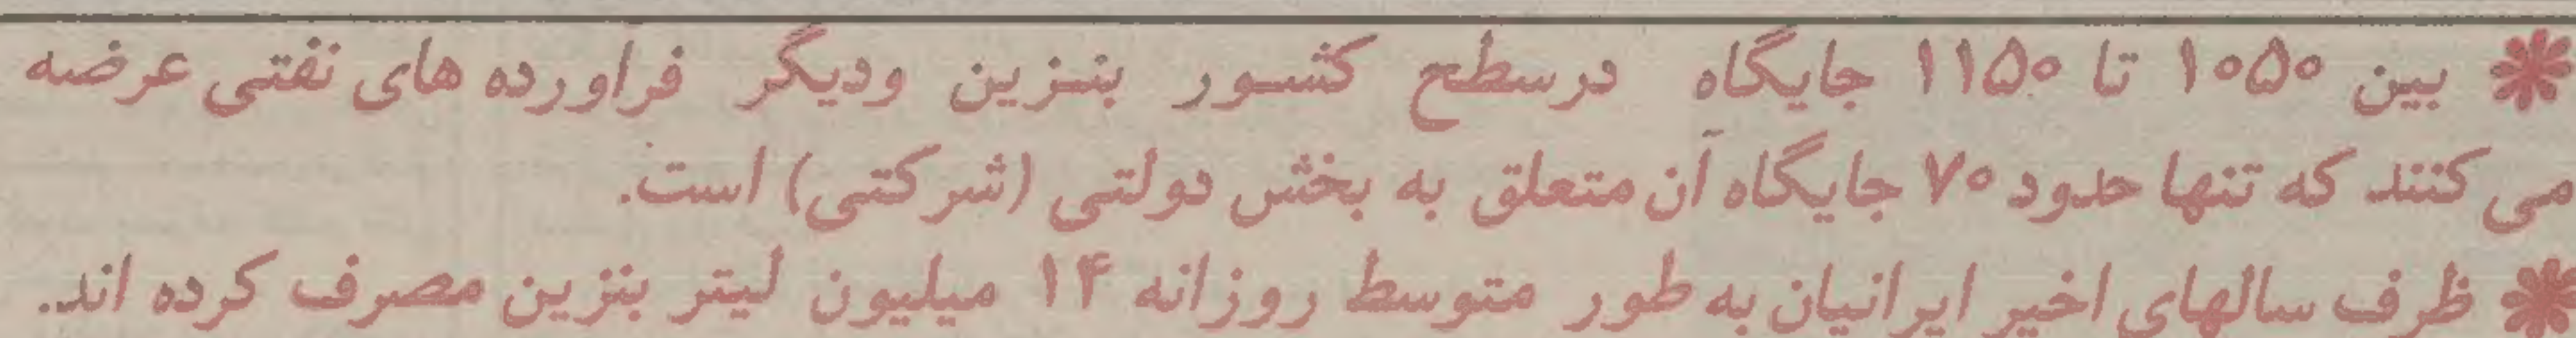 * بین ۱۰۵۰ تا ۱۱۵۰ جایگاه درسطح کشور بنزین ودیگر فراورده های نفتی عرضه
می کنند که تنها حدود ۷۰ جایگاه آن متعلق به بخش دولتی (شرکتی) است.
* ظرف سالهای اخیر ایرانیان به طور متوسط روزانه ۱۴ میلیون لیتر بنزین مصرف کرده اند.